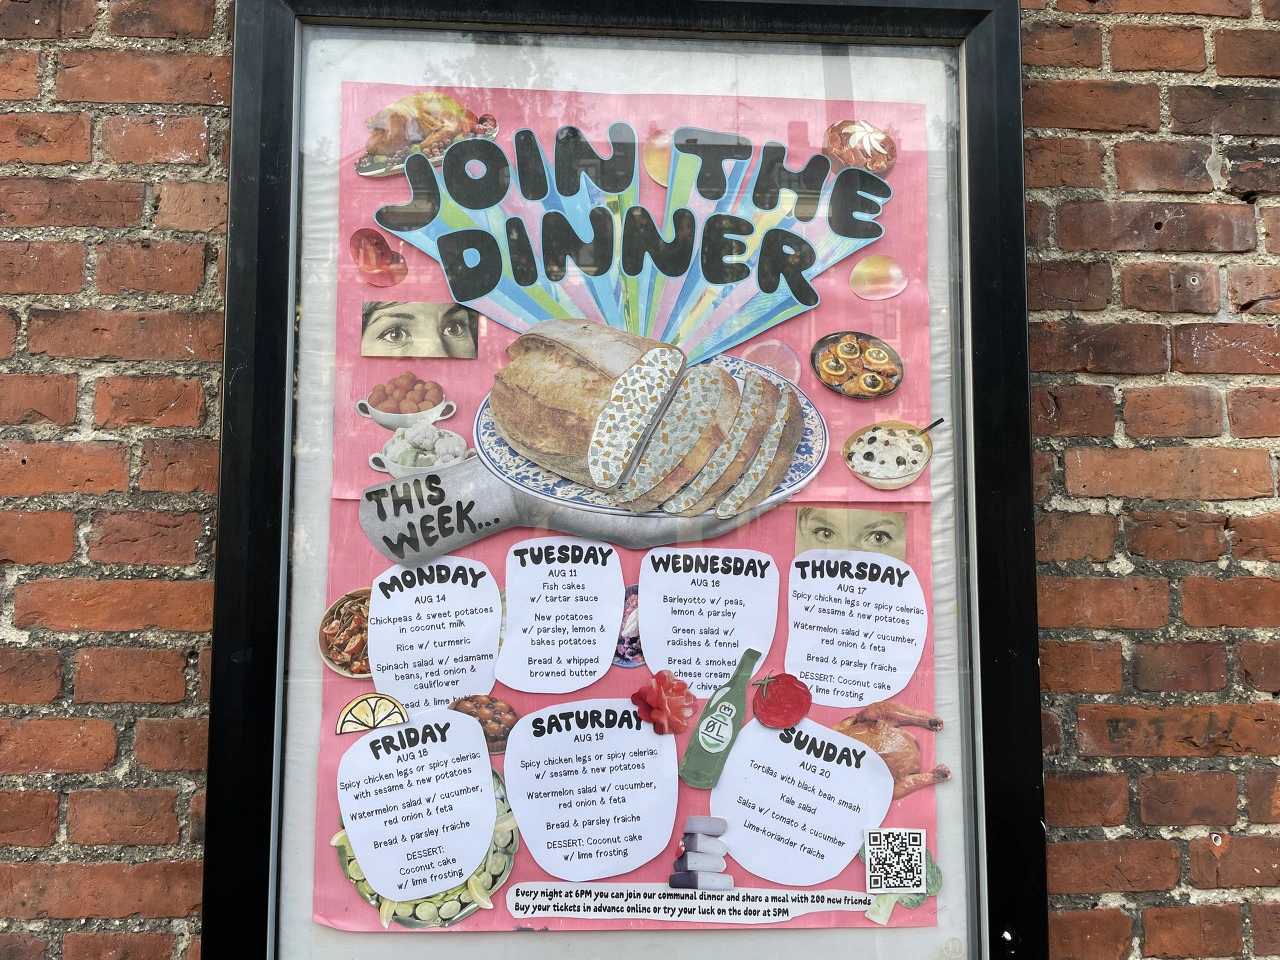 JOIN THE
DINNER
THIS
WEEK...
MONDAY
AUG 14
Chickpeas & sweet potatoes
in coconut milk
Rice w/ turmeric
Spinach salad w/ edamame
beans, red onion &
cauliflower
ead & lime bu
TUESDAY
AUG 11
Fish cakes
w/ tartar sauce
New potatoes
w/ parsley, lemon &
bakes potatoes
Bread & whipped
browned butter
WEDNESDAY
AUG 16
Barleyotto w/ peas,
lemon & parsley
Green salad w/
radishes & fennel
Bread & smoked
cheese cream
w/ chives
THURSDAY
AUG 17
Spicy chicken legs or spicy celeriac
w/ sesame & new potatoes
Watermelon salad w/ cucumber,
red onion & feta
Bread & parsley fraiche
DESSERT: Coconut cake
w/ lime frosting
FRIDAY
AUG 18
Spicy chicken legs or spicy celeriac
with sesame & new potatoes
Watermelon salad w/ cucumber,
red onion & feta
Bread & parsley fraiche
DESSERT:
Coconut cake
w/ lime frosting
SATURDAY
AUG 19
Spicy chicken legs or spicy celeriac
w/ sesame & new potatoes
Watermelon salad w/ cucumber,
red onion & feta
Bread & parsley fraiche
DESSERT: Coconut cake
w/ lime frosting
ØL
SUNDAY
AUG 20
Tortillas with black bean smash
Kale salad
Salsa w/ tomato & cucumber
Lime-koriander fraiche
Every night at 6PM you can join our communal dinner and share a meal with 200 new friends
Buy your tickets in advance online or try your luck on the door at 5PM